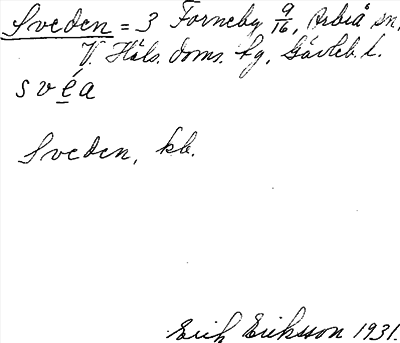 Sveden = 3 Forneby 9/16, Arbrå sn,
V. Häls. doms. tg, Gävleb. l.
svéa
Sveden, kb.
Erik Eriksson 1931.